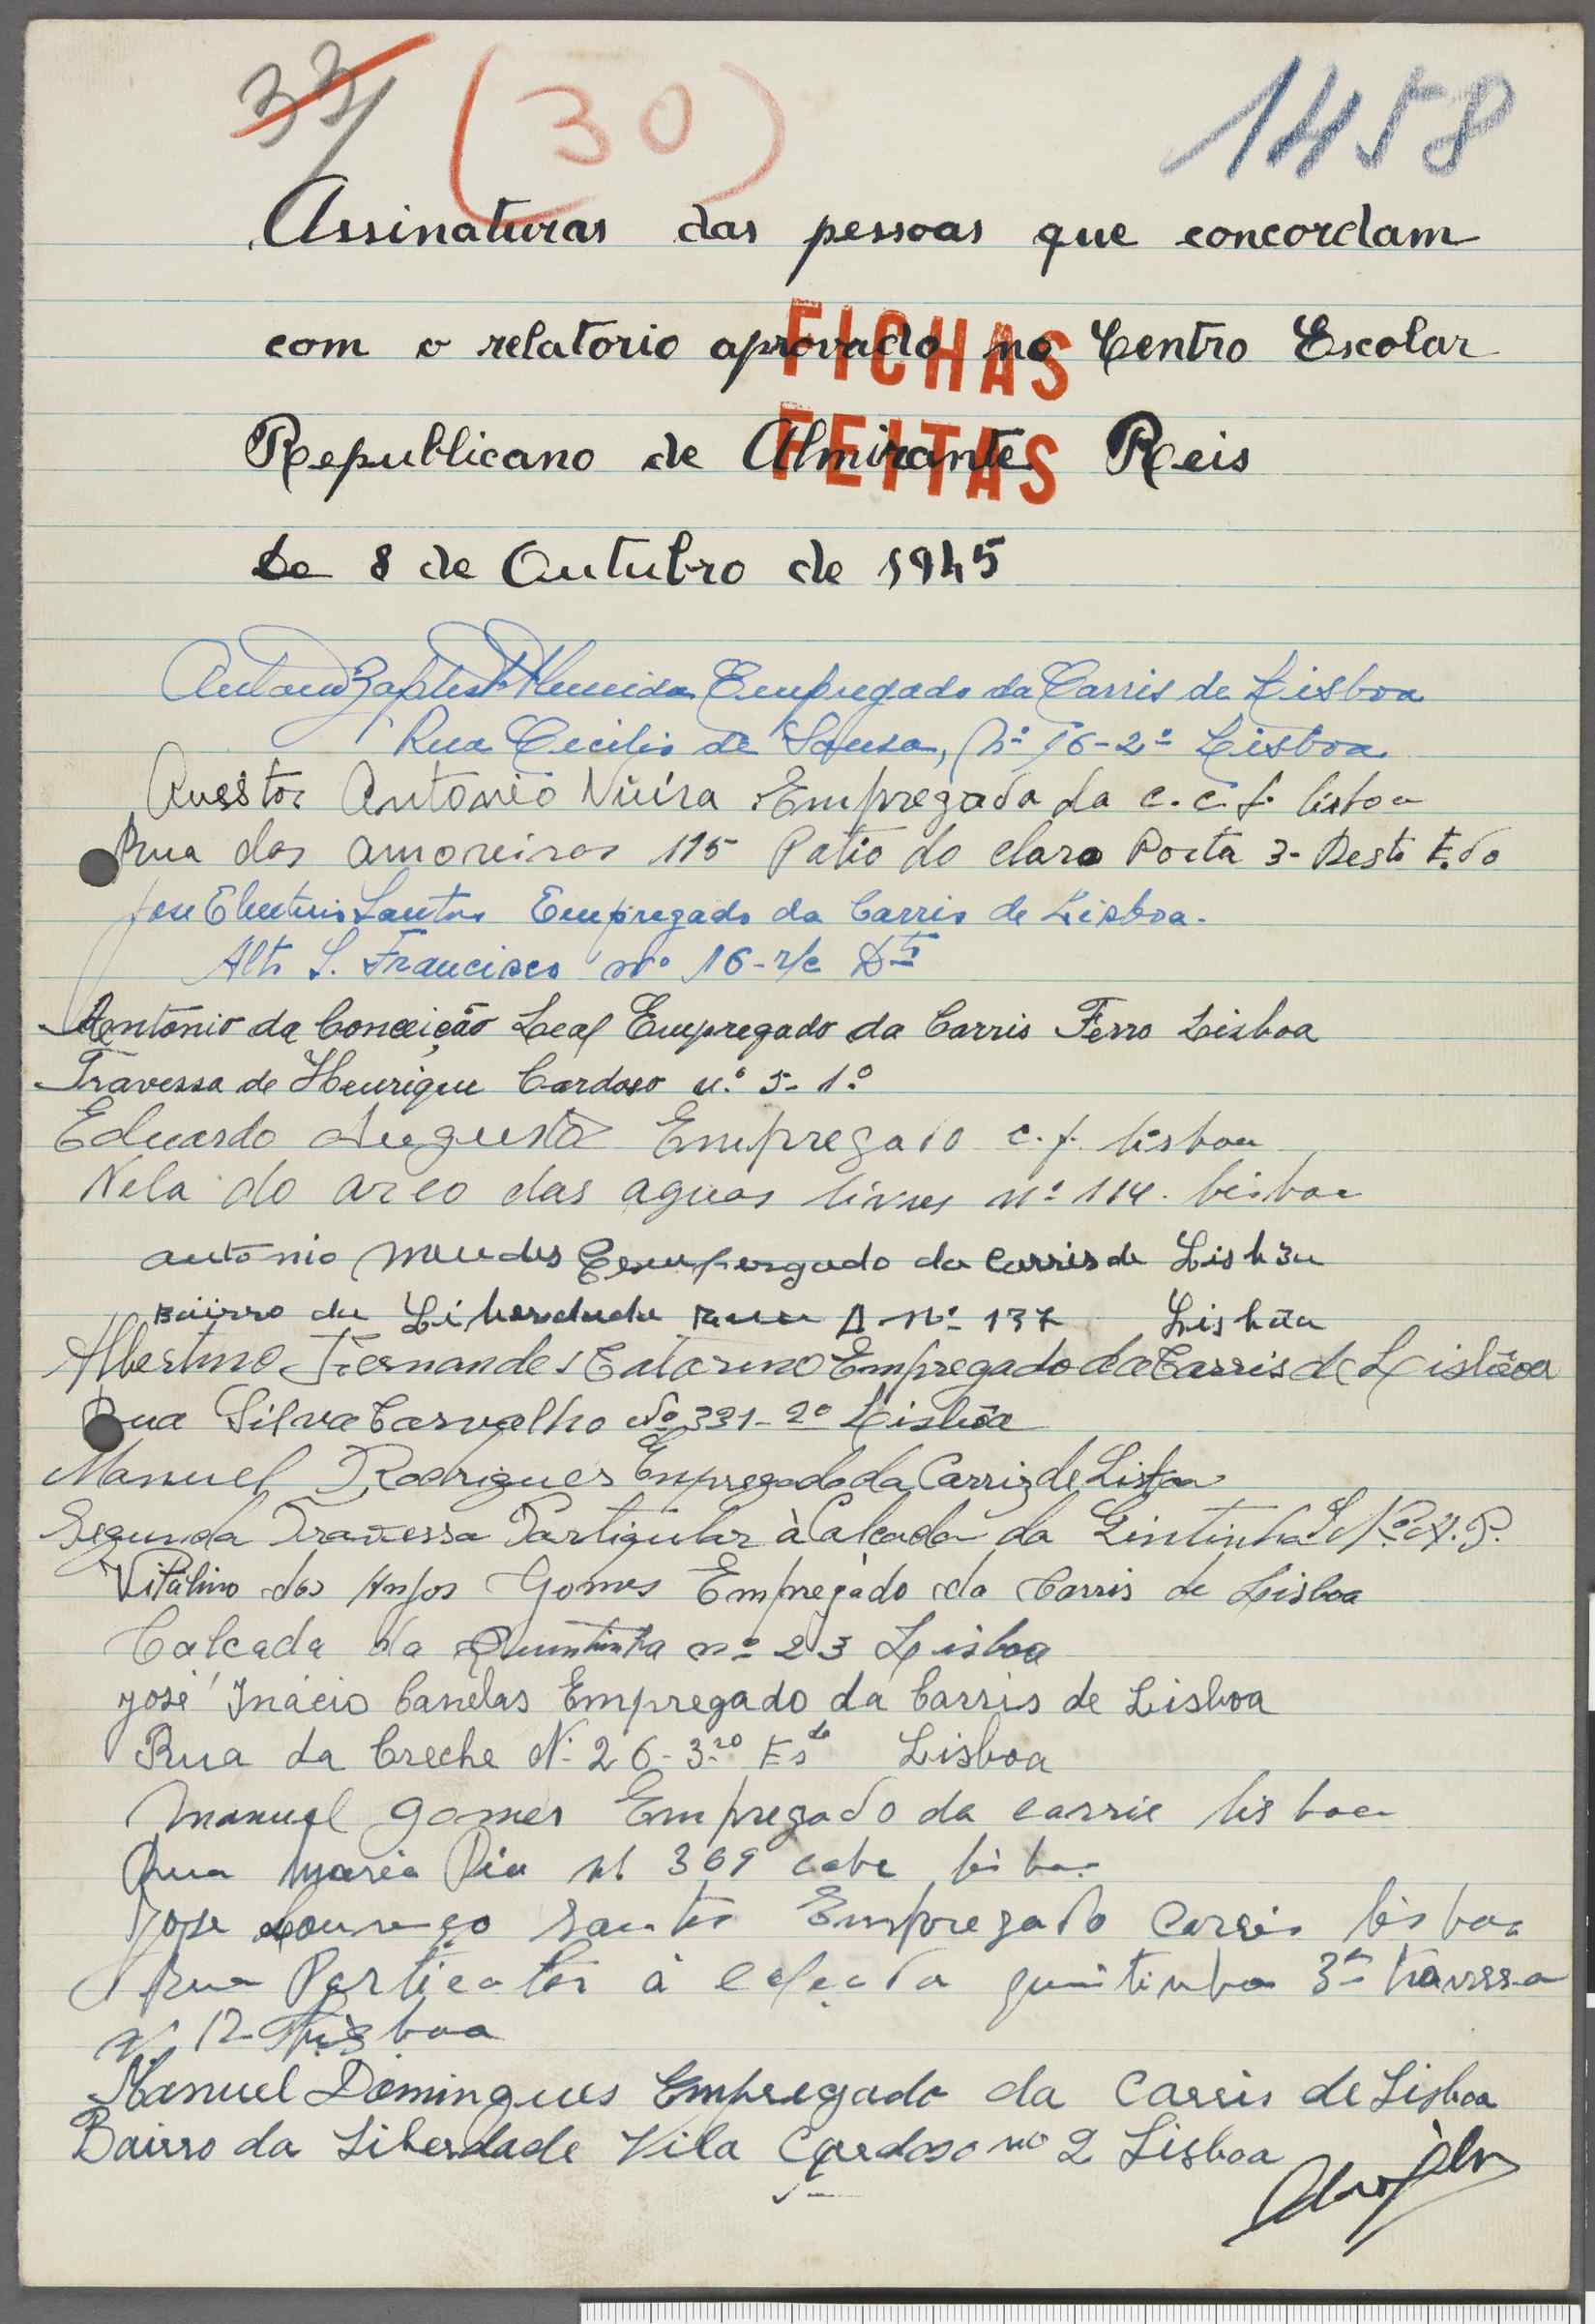 33 (30) 1458
Assinaturas das pessoas que concordam
com o relatorio aprovado no Centro Escolar
FICHAS
Republicano de Almirante Reis
FEITAS
De 8 de Outubro de 1945
Antonio Baptista Almeida Empregado da Carris de Lisboa
Rua Cecilio de Sousa, Nº 16-2º Lisboa
Antonio Empregado da c.c.f. lisboa
Rua das amoreiras 115 Patio do claro Porta 3-
Jose Eleuterio Santos Empregado da Carris de Lisboa.
Alto S. Francisco nº 16-r/c Dtº
Antonio da Conceição Leal Empregado da Carris Ferro Lisboa
Travessa de Henrique Cardoso n.º 5-1.º
Eduardo Augusto Empregado c.f. lisboa
do arco das aguas livres nº 114. lisboa
antonio mendes Empergado da Carris de Lisbõa
Bairro da Liberdade Rua A Nº 137 Lisbõa
Albertino Fernandes Catarino Empregado da Carris de Lisbôoa
Rua Silva Carvalho Nº 331-2º Lisbôa
Manuel Rodrigues Empregado da Carris de Lisboa
Segunda Travessa Particular à Calçada da
Vitalino dos Anjos Gomes Empregado da Carris de Lisboa
Calcada da Quintinha nº 23 Lisboa
José Inácio Canelas Empregado da Carris de Lisboa
Rua da Creche N. 26-3.ro Es.do Lisboa
Manuel Gomes Empregado da carrie lisboa
Rua Maria Pia 369 cave lisboa
Jose Lourenço Santos Empregado Carris lisboa
Rua Particolar à calçada quintinha 3ª travessa
Nº 12 Lisboa
Manuel Domingues Empregado da Carris de Lisboa
Bairro da Liberdade Vila Cardoso nº 2 Lisboa